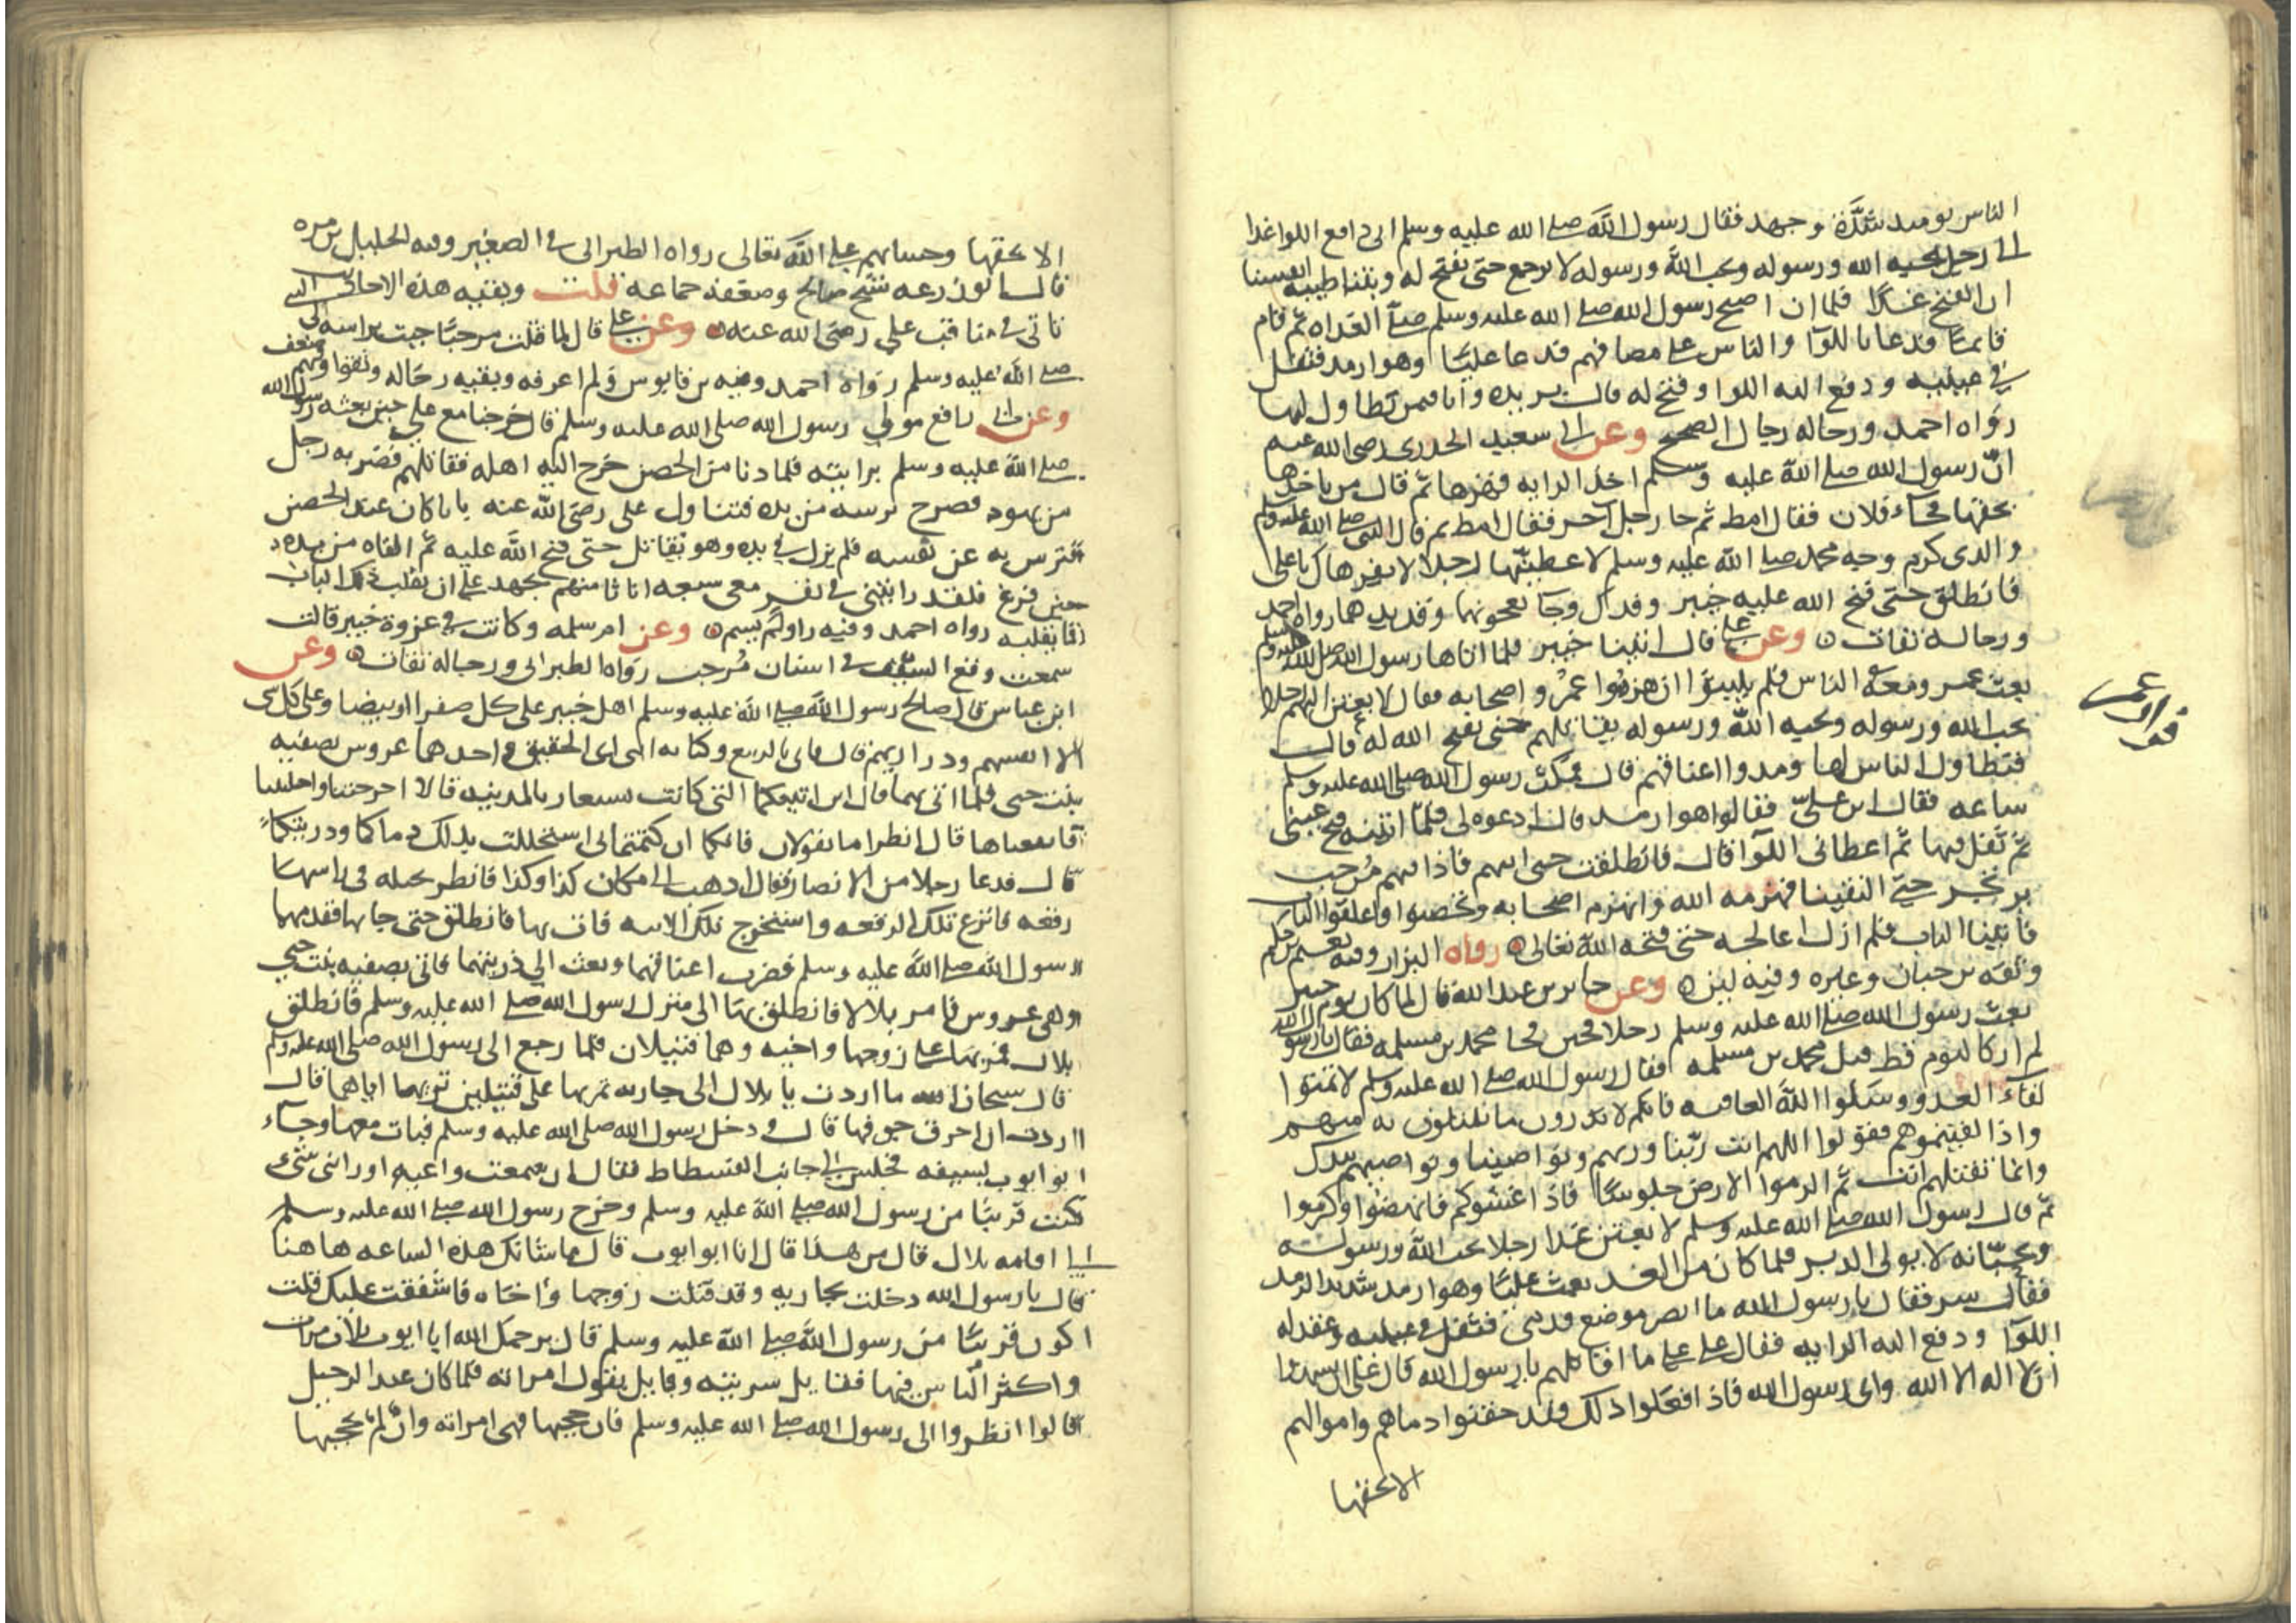 الناس يوميد شدة وجهد فقال رسول الله صلى الله عليه وسلم اني دافع اللوا غدا
الى رجل يحبه الله ورسوله ويحب الله ورسوله لا يرجع حتى يفتح له وبتنا طيبه انفسنا
ان الفتح غدا فلما ان اصبح رسول الله صلى الله عليه وسلم صلى الغداه ثم قام
قايما فدعا باللوآ والناس على مصافهم فدعا عليا وهو ارمد فتفل
في عينيه ودفع اليه اللوا وفتح له قال بريده وانا فمن تطاول لها
رواه احمد ورجاله رجال الصحيح وعن ابي سعيد الخدري رضى الله عنه
ان رسول الله صلى الله عليه وسلم اخذ الرايه فهزها ثم قال من ياخذها
بحقها فجاء فلان فقال امط ثم جا رجل آخر فقال امط ثم قال النبى صلى الله عليه وسلم
والذى كرم وجه محمد صلى الله عليه وسلم لاعطينها رجلا لا يفر هاك يا على
فانطلق حتى فتح الله عليه خيبر وفدك وجا بعجوتها وقديدهما رواه احمد
ورجاله ثقات وعن على قال اتينا خيبر فلما اتاها رسول الله صلى الله عليه وسلم
بعث عمر ومعه الناس فلم يلبثوا ان هزموا عمر واصحابه فقال لابعثن اليهم رجلا
يحب الله ورسوله ويحبه الله ورسوله يقاتلهم حتى يفتح الله له قال
فتطاول الناس لها ومدوا اعناقهم قال فمكث رسول الله صلى الله عليه وسلم
ساعه فقال اين على فقالوا هو ارمد قال ادعوه لي فلما اتيته فتح عينى
ثم تفل فيها ثم اعطانى اللوآ قال فانطلقت حتى اتيهم فاذا بهم مرحب
يرتجز حتى التقينا فهزمه الله وانهزم اصحابه وتحصنوا واغلقوا الباب
فاتينا الباب فلم ازل اعالجه حتى فتحه الله تعالى رواه البزار وفيه نعيم بن حكيم
وثقه بن حبان وغيره وفيه لين وعن جابر بن عبد الله قال لما كان يوم خيبر
بعث رسول الله صلى الله عليه وسلم رجلا فجبن فجا محمد بن مسلمه فقال يا رسول الله
لم ار كاليوم قط قتل محمد بن مسلمه فقال رسول الله صلى الله عليه وسلم لا تمنوا
لقآء العدو وسلوا الله العافيه فانكم لا تدرون ما تبتلون به منهم
واذا لقيتموهم فقولوا اللهم انت ربنا وربهم ونواصينا ونواصيهم بيدك
وانما تقتلهم انت ثم الزموا الارض جلوسا فاذا غشوكم فانهضوا وكبروا
ثم قال رسول الله صلى الله عليه وسلم لابعثن غدا رجلا يحب الله ورسوله
ويحبانه لا يولى الدبر فلما كان من الغد بعث عليا وهو ارمد شديد الرمد
فقال سر فقال يا رسول الله ما ابصر موضع قدمى فتفل فى عينيه وعقد له
اللوآ ودفع اليه الرايه فقال على على ما اقاتلهم يا رسول الله قال على ان يشهدوا
ان لا اله الا الله وانى رسول الله فاذا فعلوا ذلك فقد حقنوا دماهم واموالهم
الا بحقها
الا بحقها وحسابهم على الله تعالى رواه الطبرانى فى الصغير وفيه الخليل بن مره
قال ابو زرعه شيخ صالح وضعفه جماعه قلت وبقيه هذه الاحاديث
تاتى فى مناقب على رضى الله عنه وعن على قال لما قتلت مرحبا جيت براسه الى
صلى الله عليه وسلم رواه احمد وفيه بن قابوس ولم اعرفه وبقيه رجاله وثقوا وفيهم ضعف
وعن ابى رافع مولى رسول الله صلى الله عليه وسلم قال خرجنا مع على حين بعثه رسول الله
صلى الله عليه وسلم برايته فلما دنا من الحصن خرج اليه اهله فقاتلهم فضربه رجل
من يهود فطرح ترسه من يده فتناول على رضى الله عنه بابا كان عند الحصن
فترس به عن نفسه فلم يزل فى يده وهو يقاتل حتى فتح الله عليه ثم القاه من يده
حين فرغ فلقد رايتنى فى نفر معى سبعه انا ثامنهم نجهد على ان نقلب ذلك الباب
فما نقلبه رواه احمد وفيه راو لم يسم وعن ام سلمه وكانت فى غزوة خيبر قالت
سمعت وقع السيف فى اسنان مرحب رواه الطبرانى ورجاله ثقات وعن
ابن عباس قال صالح رسول الله صلى الله عليه وسلم اهل خيبر على كل صفرا او بيضا وعلى كل شى
الا انفسهم وذراريهم قال فاتى بالربيع وكنانه ابنى ابى الحقيق واحدهما عروس بصفيه
بنت حيى فلما اتى بهما قال اين آنيتكما التى كانت تستعار بالمدينه قالا اخرجتنا واجليتنا
فانفقناها قال انظرا ما تقولان فانكما ان كتمتمانى استحللت بذلك دماكما وذريتكما
قال فدعا رجلا من الانصار فقال اذهب الى مكان كذا وكذا فانظر نخيله فى راسها
رقعه فانزع تلك الرقعه واستخرج تلك الانيه فات بها فانطلق حتى جا بها فقدمهما
رسول الله صلى الله عليه وسلم فضرب اعناقهما وبعث الى ذريتهما فاتى بصفيه بنت حيى
وهى عروس فامر بلالا فانطلق بها الى منزل رسول الله صلى الله عليه وسلم فانطلق
بلال فمر بها على زوجها واخيه وهما قتيلان فلما رجع الى رسول الله صلى الله عليه وسلم
قال سبحان الله ما اردت يا بلال الى جاريه تمر بها على قتيلين تريها اياهما قال
اردت ان احرق جوفها قال ودخل رسول الله صلى الله عليه وسلم فبات معها وجآء
ابو ايوب بسيفه فجلس الى جانب الفسطاط فقال ان سمعت واعيه او رابنى شىء
كنت قريبا من رسول الله صلى الله عليه وسلم وخرج رسول الله صلى الله عليه وسلم
الى اقامه بلال قال من هذا قال انا ابو ايوب قال ما شانك هذه الساعه هاهنا
قال يا رسول الله دخلت بجاريه وقد قتلت زوجها واخاه فاشفقت عليك قلت
اكون قريبا من رسول الله صلى الله عليه وسلم قال يرحمك الله ابا ايوب ثلاث مرات
واكثر الناس فيها فقايل سريته وقايل يقول امراته فلما كان عند الرحيل
قالوا انظروا الى رسول الله صلى الله عليه وسلم فان حجبها فهى امراته وان لم يحجبها